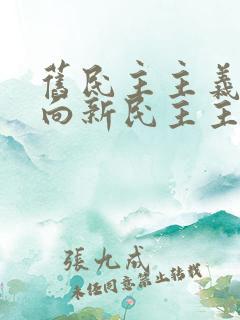 舊民主主義
向新民主主
張九成
未經同意禁止轉載